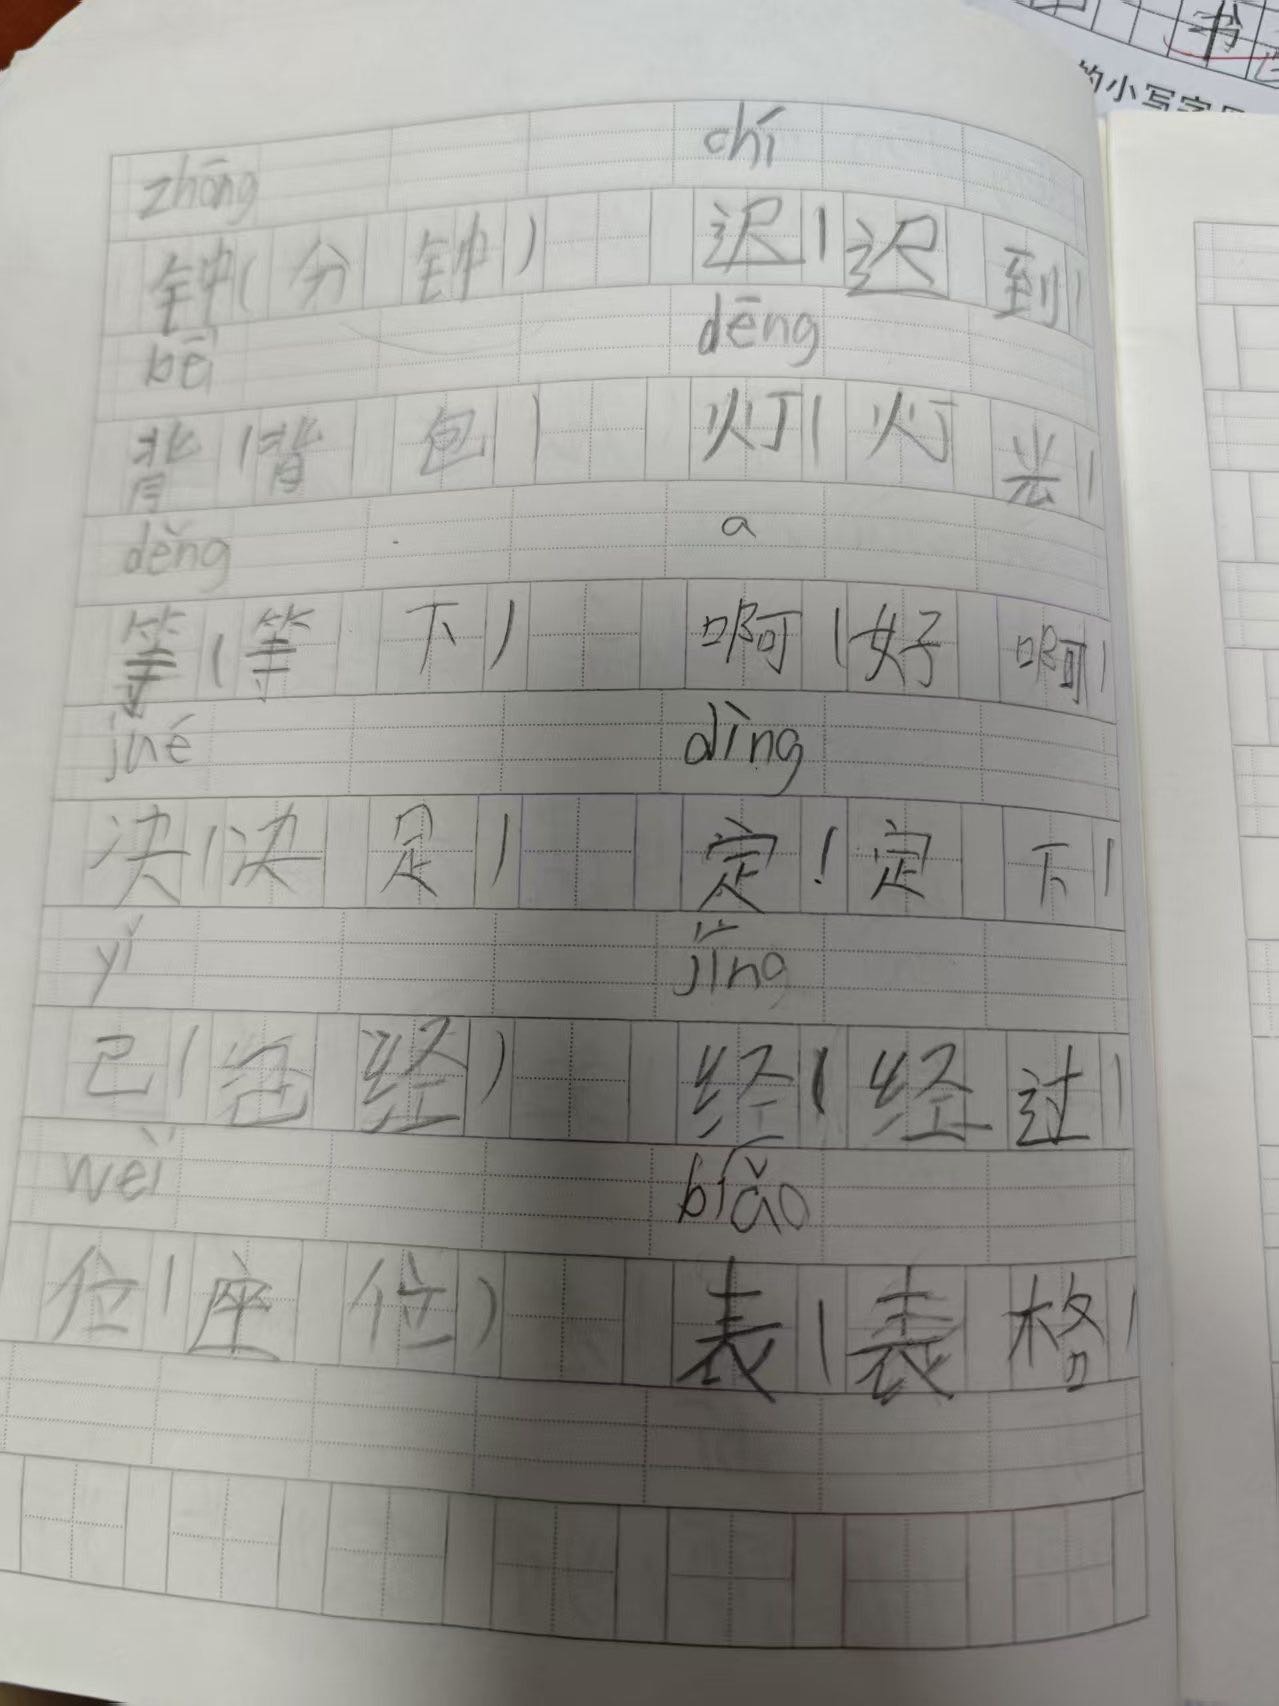 书
的小写字母
zhōng chí
钟(分钟) 迟(迟到)
bēi dēng
背(背包) 灯(灯光)
děng a
等(等下) 啊(好啊)
jué dìng
决(决定) 定(定下)
yǐ jīng
已(已经) 经(经过)
wèi biǎo
位(座位) 表(表格)